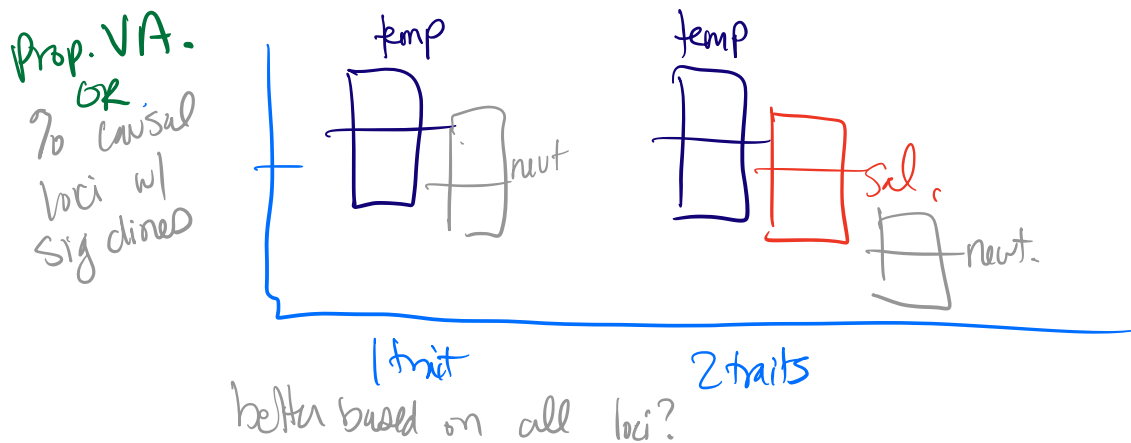 Prop. VA.
OR
% causal
loci w/
sig clines
temp
neut
temp
sal.
neut.
1 trait
2 traits
better based on all loci?